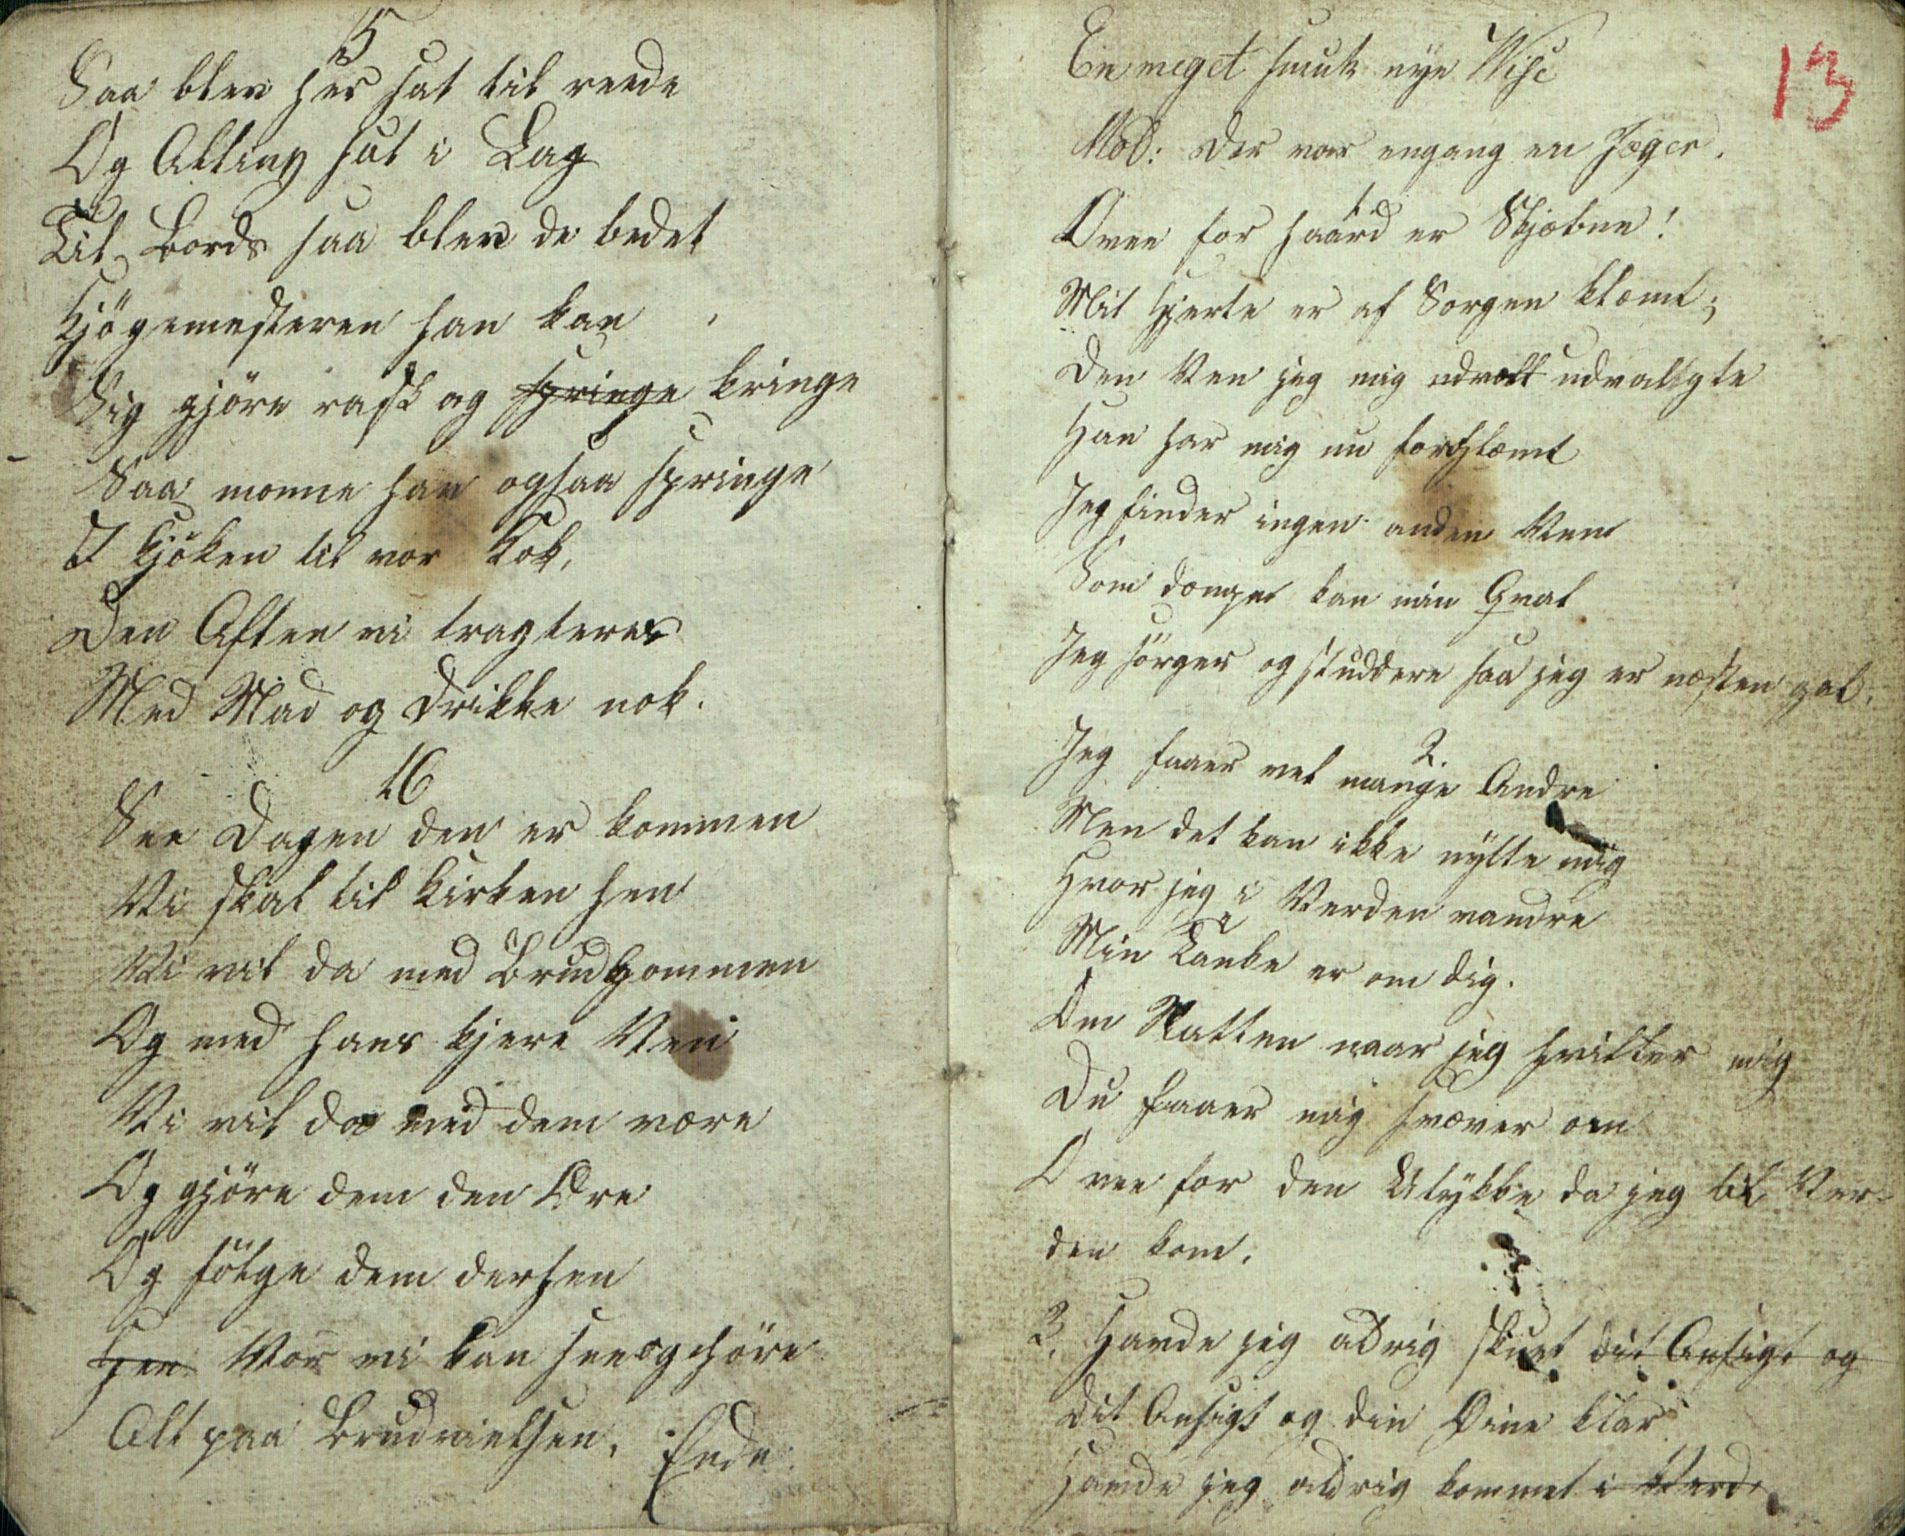 15
Saa blev her sat til reede
Og Alting sat i Lag
Til Bords saa blev de bedet
Kjøgemesteren han kan
Sig gjöre rask og springe kringe
Saa monne han ogsaa springe
I kjöken til vor Kok,
Den Aften vi tragteres
Med Mad og Drikke nok.
16
See Dagen den er kommen
Vi skal til Kirken hen
Vi vil da med Brudgommen
Og med hans kjere Ven
Vi vil da med dem være
Og gjöre dem den Ære
Og fölge dem derhen
Hen Vor vi kan see og höre
Alt paa Brudvielsen. Ende.
13
En meget smuk nye Vise
Mel: Der var engang en Jæger.
1.
O vee for haard er Skjæbne!
Mit Hjerte er af Sorgen klæmt;
Den Ven jeg mig udvalt udvalgte
Han har mig nu forglæmt
Jeg finder ingen anden Ven
Som dæmpe kan min Qval
Jeg sörger og studdere saa jeg er næsten gal.
2.
Jeg faaer vel mange Andre
Men det kan ikke nytte mig
Hvor jeg i Verden vandre
Min Tanke er om dig.
Om Natten naar jeg hviller mig
Du faaer mig svæver om
O vee for den Ulykke da jeg til Ver-
den kom.
3. Havde jeg aldrig skuet dit Ansigt og
Dit Ansigt og din Öine klar
Havde jeg aldrig kommet i Verd